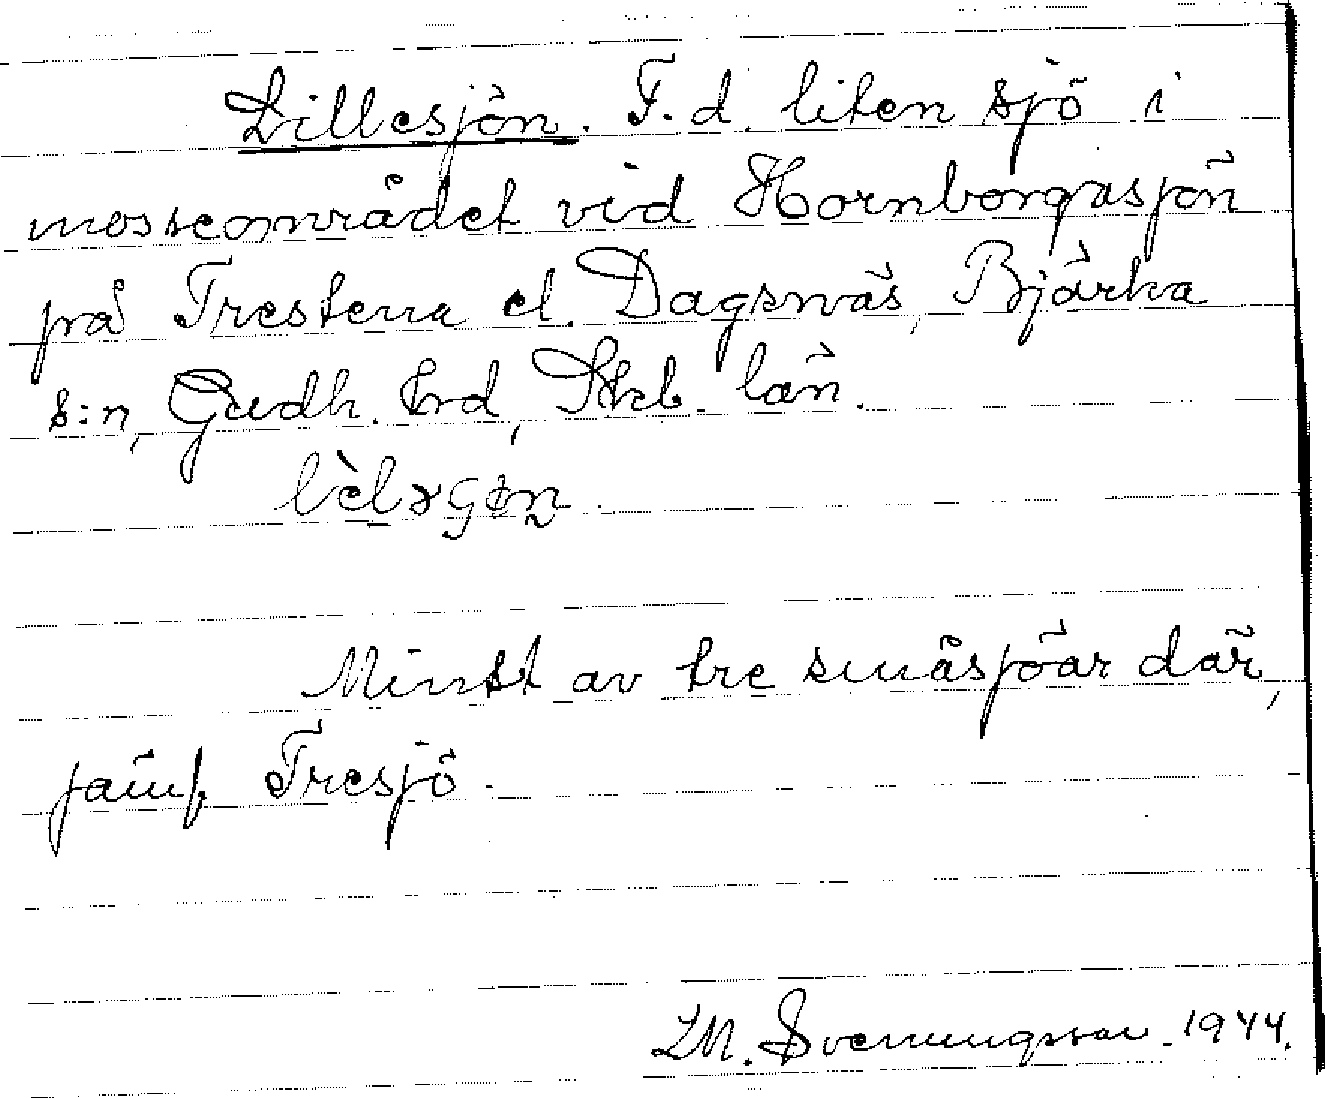 Lillesjön. F.d. liten sjö i
mosseområdet vid Hornborgasjön
på Trestena el. Dagsnäs, Bjärka
s:n, Gudh. hrd, Skb. län.
Minst av tre småsjöar där,
jämf. Tresjö.
Svenungsson. 1944.